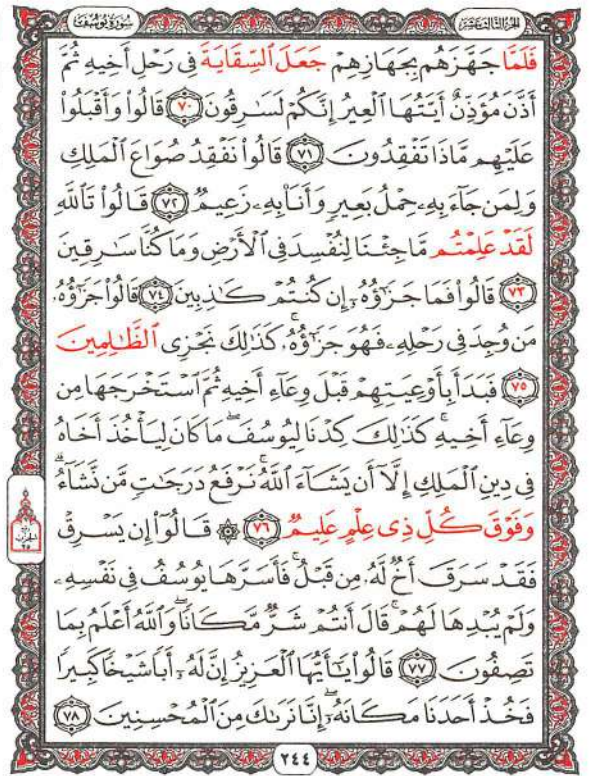 الجزء الثالث عشر
سورة يوسف
فَلَمَّا جَهَّزَهُم بِجَهَازِهِمْ جَعَلَ ٱلسِّقَايَةَ فِى رَحْلِ أَخِيهِ ثُمَّ
أَذَّنَ مُؤَذِّنٌ أَيَّتُهَا ٱلْعِيرُ إِنَّكُمْ لَسَٰرِقُونَ ٧٠ قَالُوا۟ وَأَقْبَلُوا۟
عَلَيْهِم مَّاذَا تَفْقِدُونَ ٧١ قَالُوا۟ نَفْقِدُ صُوَاعَ ٱلْمَلِكِ
وَلِمَن جَآءَ بِهِۦ حِمْلُ بَعِيرٍ وَأَنَا۠ بِهِۦ زَعِيمٌ ٧٢ قَالُوا۟ تَٱللَّهِ
لَقَدْ عَلِمْتُم مَّا جِئْنَا لِنُفْسِدَ فِى ٱلْأَرْضِ وَمَا كُنَّا سَٰرِقِينَ
٧٣ قَالُوا۟ فَمَا جَزَٰٓؤُهُۥٓ إِن كُنتُمْ كَٰذِبِينَ ٧٤ قَالُوا۟ جَزَٰٓؤُهُۥ
مَن وُجِدَ فِى رَحْلِهِۦ فَهُوَ جَزَٰٓؤُهُۥ ۚ كَذَٰلِكَ نَجْزِى ٱلظَّٰلِمِينَ
٧٥ فَبَدَأَ بِأَوْعِيَتِهِمْ قَبْلَ وِعَآءِ أَخِيهِ ثُمَّ ٱسْتَخْرَجَهَا مِن
وِعَآءِ أَخِيهِ ۚ كَذَٰلِكَ كِدْنَا لِيُوسُفَ ۖ مَا كَانَ لِيَأْخُذَ أَخَاهُ
فِى دِينِ ٱلْمَلِكِ إِلَّآ أَن يَشَآءَ ٱللَّهُ ۚ نَرْفَعُ دَرَجَٰتٍ مَّن نَّشَآءُ ۗ
وَفَوْقَ كُلِّ ذِى عِلْمٍ عَلِيمٌ ٧٦ ۞ قَالُوٓا۟ إِن يَسْرِقْ
فَقَدْ سَرَقَ أَخٌ لَّهُۥ مِن قَبْلُ ۚ فَأَسَرَّهَا يُوسُفُ فِى نَفْسِهِۦ
وَلَمْ يُبْدِهَا لَهُمْ ۚ قَالَ أَنتُمْ شَرٌّ مَّكَانًا ۖ وَٱللَّهُ أَعْلَمُ بِمَا
تَصِفُونَ ٧٧ قَالُوا۟ يَٰٓأَيُّهَا ٱلْعَزِيزُ إِنَّ لَهُۥٓ أَبًا شَيْخًا كَبِيرًا
فَخُذْ أَحَدَنَا مَكَانَهُۥٓ ۖ إِنَّا نَرَىٰكَ مِنَ ٱلْمُحْسِنِينَ ٧٨
٢٤٤